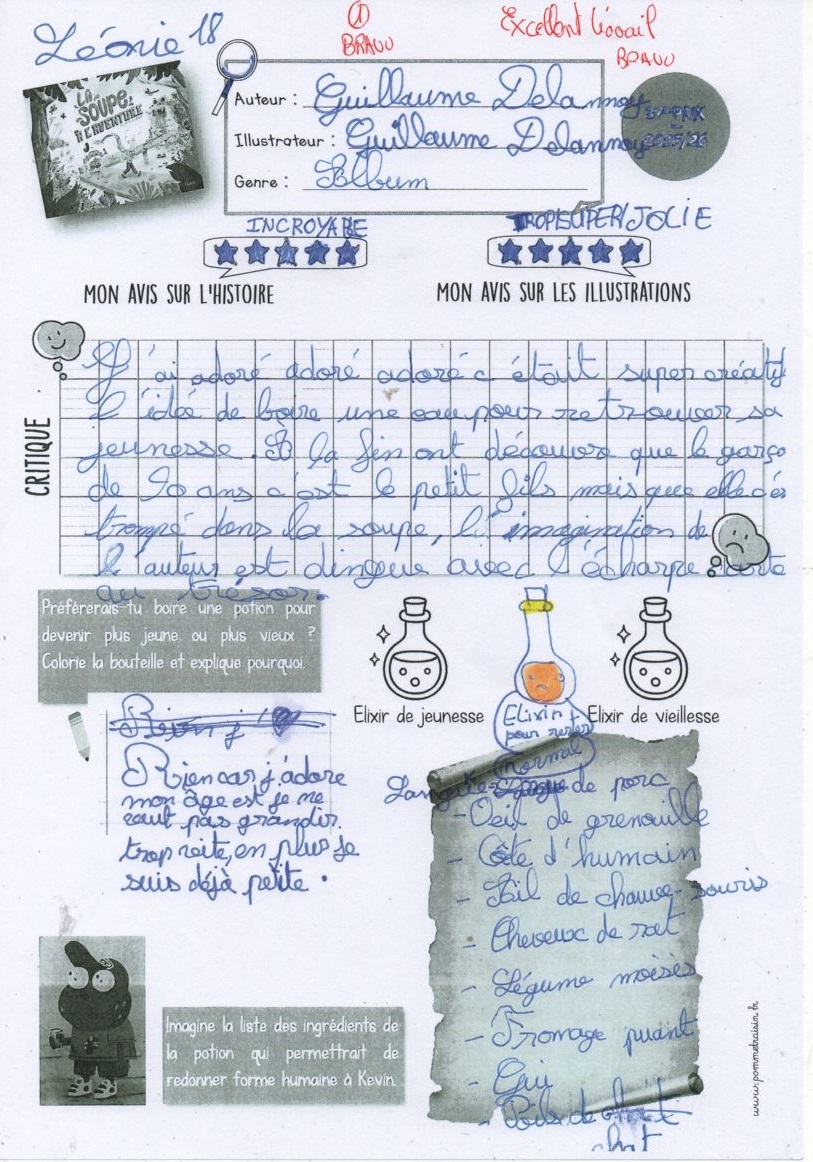 Léonie 18
① BRAVO
Excellent travail
BRAVO
LA SOUPE À L'AVENTURE
Auteur : Guillaume Delannoy
Illustrateur : Guillaume Delannoy
Genre : Album
2025/26
INCROYABE
TROP SUPER JOLIE
MON AVIS SUR L'HISTOIRE
MON AVIS SUR LES ILLUSTRATIONS
CRITIQUE
J'ai adoré adoré adoré c était super créatif
l'idée de boire une eau pour retrouver sa
jeunesse. A la fin ont découvre que le garço
de 90 ans c'est le petit fils mais que elle cés
trompé dans la soupe, l'imagination de
l'auteur est dingue avec l'écharpe carte
au trésor.
Préfèrerais-tu boire une potion pour
devenir plus jeune ou plus vieux ?
Colorie la bouteille et explique pourquoi.
Elixir de jeunesse
Elixir
pour rester
normal
Elixir de vieillesse
Rien j'
Rien car j'adore
mon âge est je ne
veut pas grandir
trop vite, en plus je
suis déjà petite.
Langue de porc
- Oeil de grenouille
- Côte d'humain
- Bil de chauve-souris
- Cheveux de rat
- Légume moisis
- Fromage puant
- Gui
- Poils de
Imagine la liste des ingrédients de
la potion qui permettrait de
redonner forme humaine à Kevin.
www.pommetraisin.fr